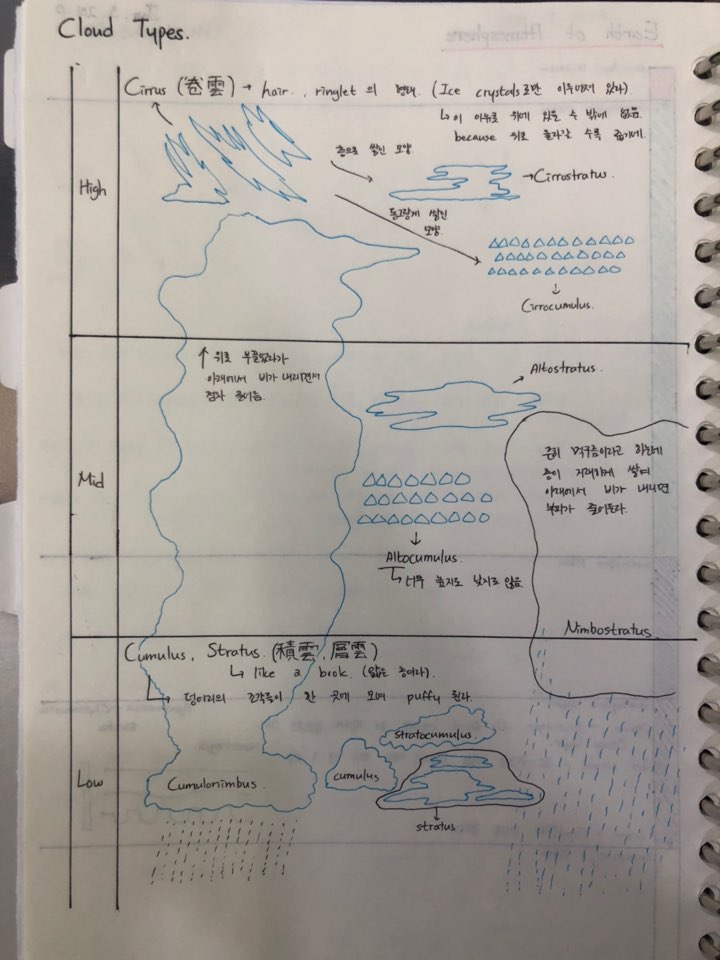 Cloud Types.
Cirrus (卷雲) → hair, ringlet 의 형태. (Ice crystals로만 이루어져 있다).
↳ 이 아위로 위에 있을 수 밖에 없음.
because 위로 올라갈 수록 춥기에.
층으로 쌓인 모양
→ Cirrostratus.
동그랗게 쌓인
모양.
High
Cirrocumulus.
↑ 위로 부풀었다가
아래에서 비가 내리면서
점차 줄어듬.
Altostratus.
Mid
흔히 먹구름이라고 하는데
층이 거대하게 쌓여
아래에서 비가 내리면
부피가 줄어든다.
Altocumulus.
↳ 너무 높지도 낮지도 않음.
Nimbostratus.
Cumulus, Stratus. (積雲, 層雲)
↳ like a book. (얇은 층이다).
→ 덩어리의 조각들이 한 곳에 모여 puffy 된다.
stratocumulus.
Low
Cumulonimbus.
cumulus
stratus